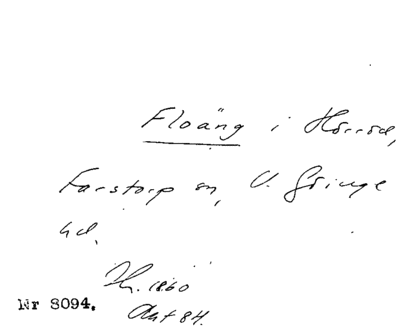 Floäng i Hörröd,
Farstorp sn, V. Göinge
hd.
Jh. 1860
Akt 84.
Nr 8094.